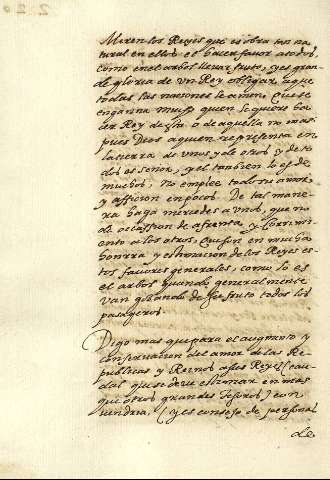 Miren los Reyes que es obra tan na
tural en ellos el hacer favor a todos,
como en el arbol llevar fruto, y es gran
de gloria de un Rey o llegar a que
todas las naciones le amen. Que se
engaña mucho quien se quiere ha
cer Rey de esta, o de aquella no mas:
pues Dios a quien representa en
la tierra de unos y de otros y de to
dos es señor, y el tambien lo es de
muchos, no emplee todo su amor,
y afficion en pocos. De tal mane
ra haga mercedes a unos, que no
dé occassion de afrenta, y corrimi
ento a los otros, que son en mucha
honrra y estimacion de los Reyes es
tos favores generales, como lo es
el arbol quando generalmente
van gozando de su fruto todos los
pasageros.
Digo mas que para el augmento y
conservacion del amor de las Re
publicas y Reinos a sus Reyes (cau
dal que se deve estimar en mas
que otros grandes tesoros) con
vendria, (y es consejo de personas
de